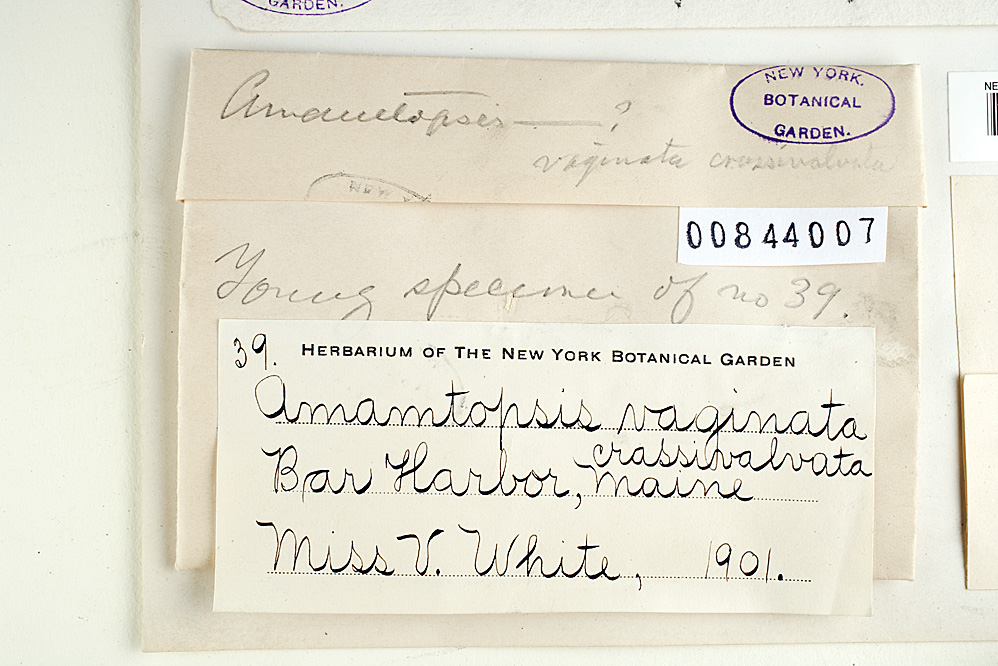 GARDEN.
Amanitopsis — ?
NEW YORK.
BOTANICAL
GARDEN.
vaginata crassivalvata
NEW Y
00844007
Young specimen of no 39.
39. HERBARIUM OF THE NEW YORK BOTANICAL GARDEN
Amamtopsis vaginata
crassivalvata
Bar Harbor, Maine
Miss V. White, 1901.
NE